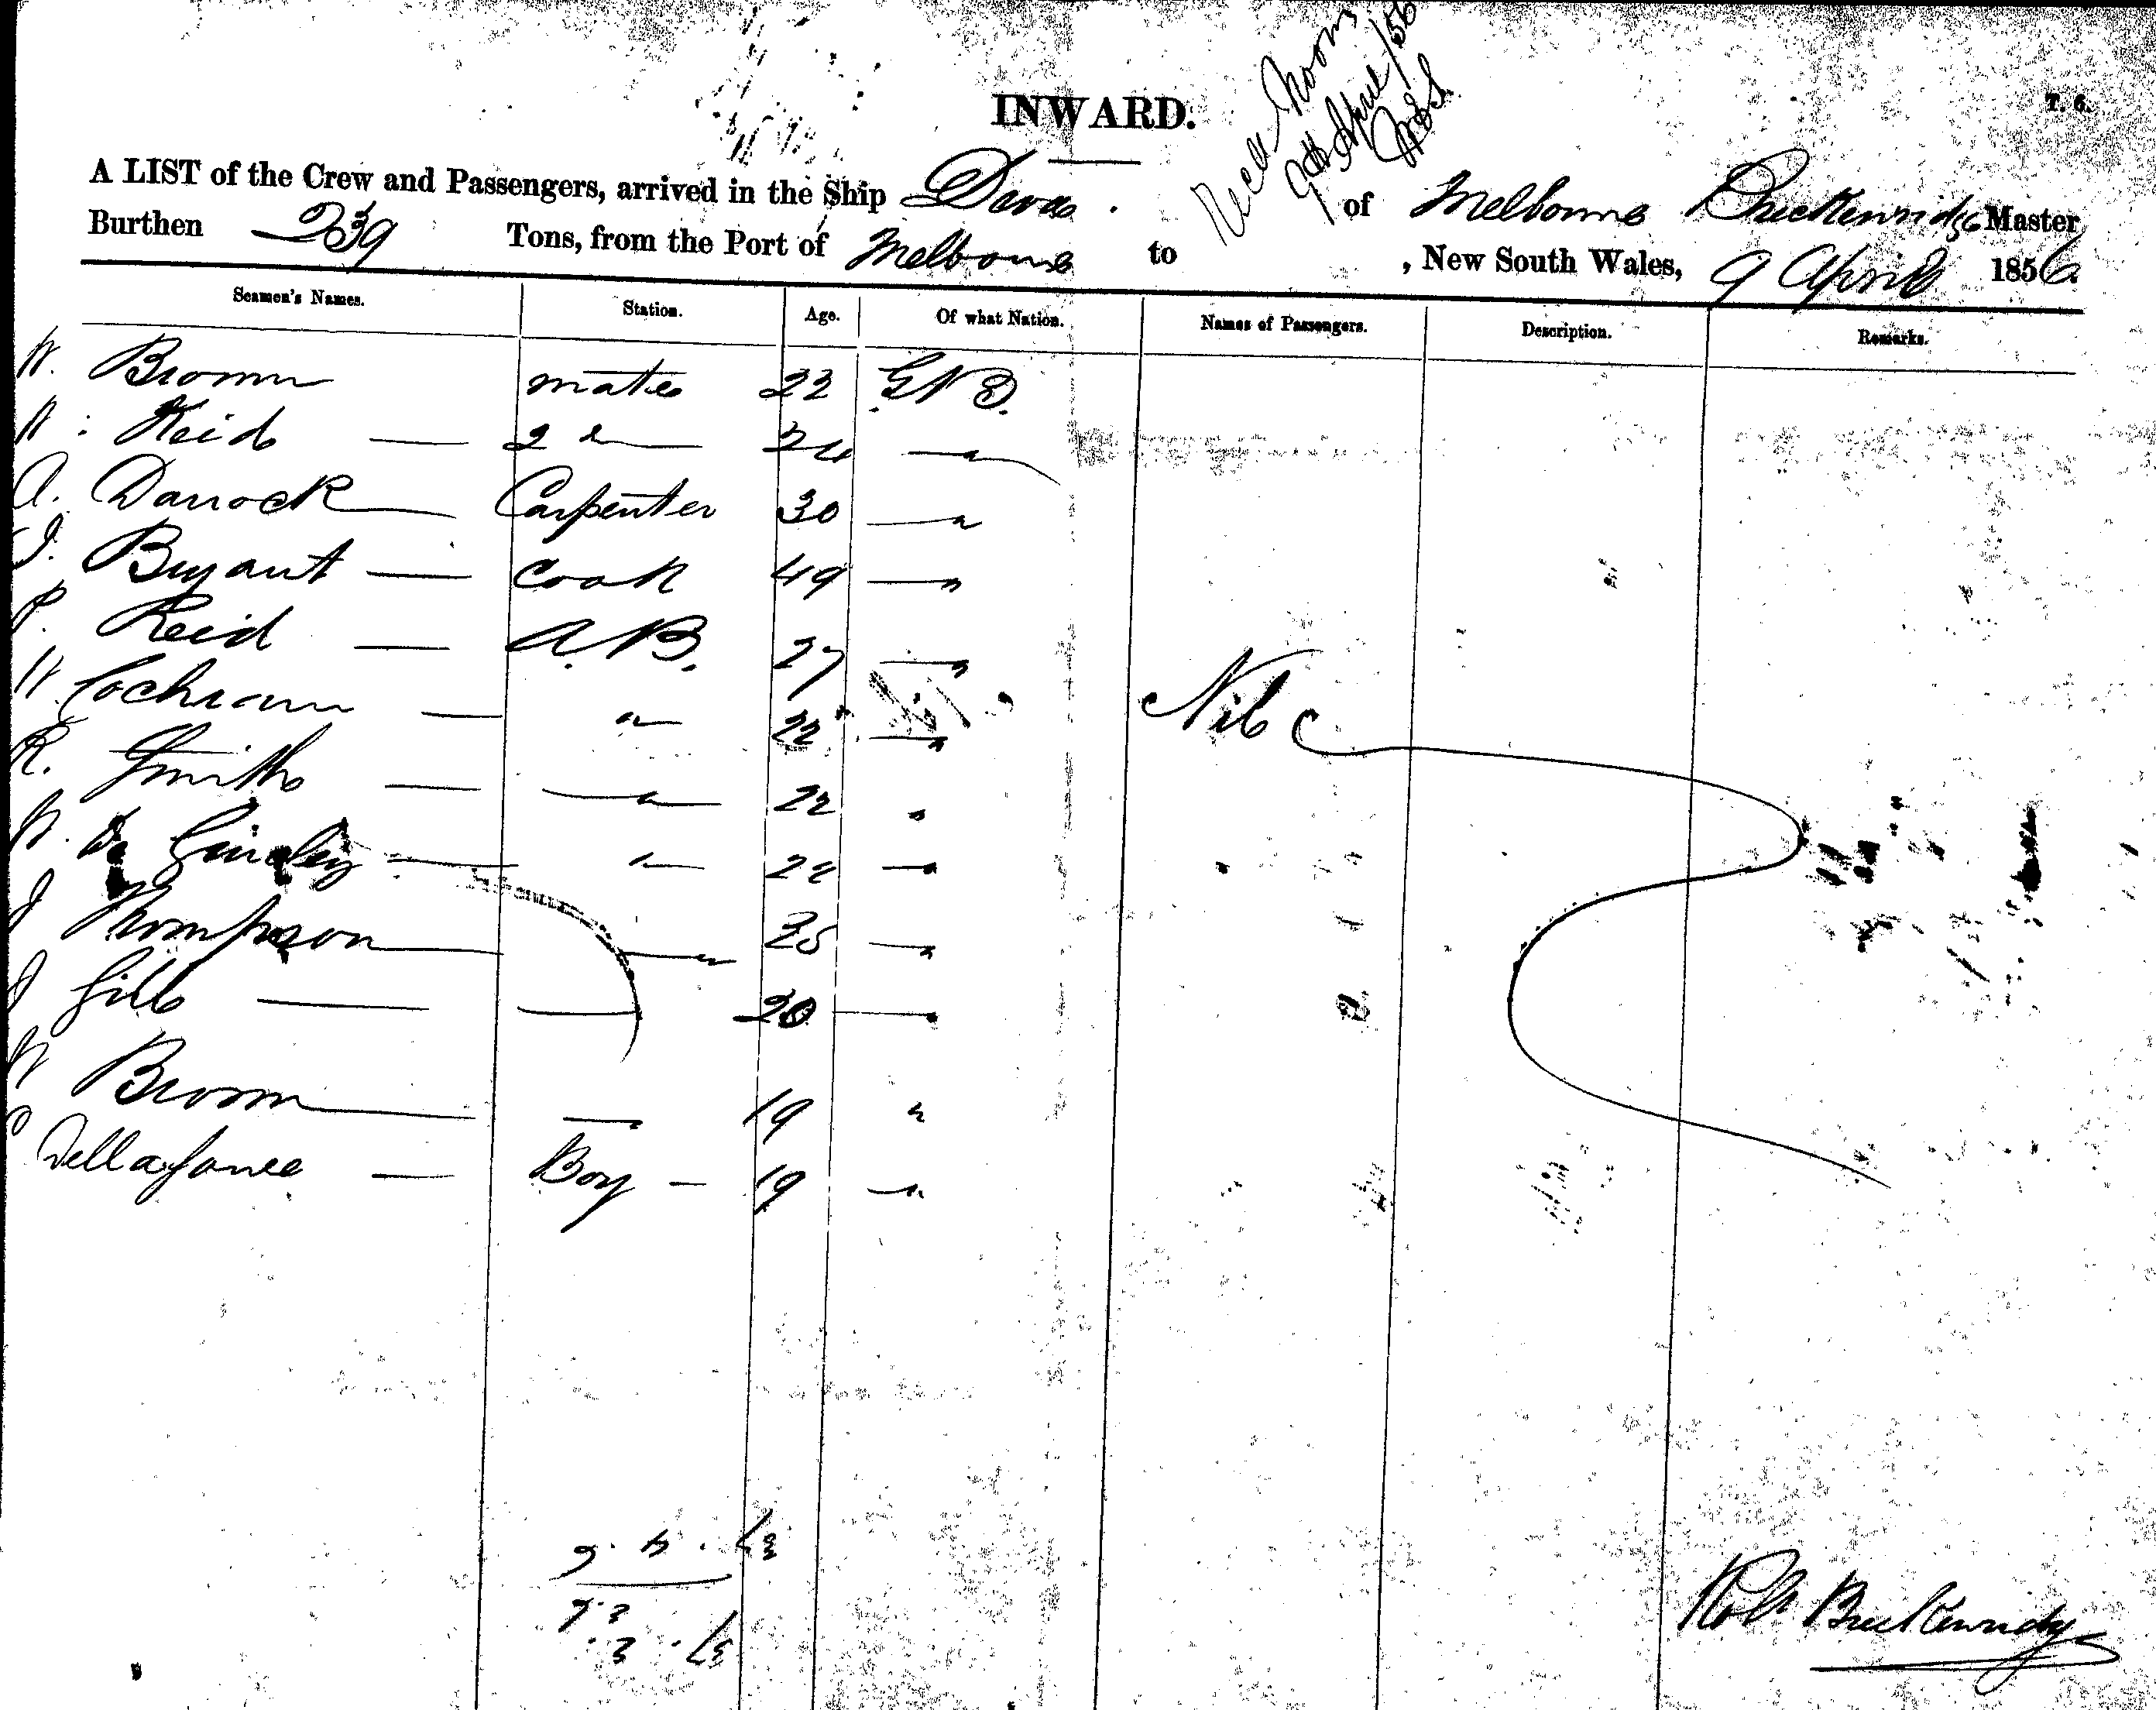 INWARD.
T. 6.
9th April /56
A LIST of the Crew and Passengers, arrived in the Ship Deva of Melbourne Breckenridge Master
Burthen 239 Tons, from the Port of Melbourne to , New South Wales, 9 April 1856
Seamen's Names. Station. Age. Of what Nation. Names of Passengers. Description. Remarks.
W. Brown mate 22
Reid 2 24 "
A. Darrock Carpenter 30 "
J. Bryant Cook 49 "
P. Reid A.B. 27 "
W Cochran " 22 "
Nil
R. Smith " 22 "
" 22 "
J Thompson " 25 "
J Gill 20 "
W Brown 19 "
Boy 19 "
Robt Breckenridge